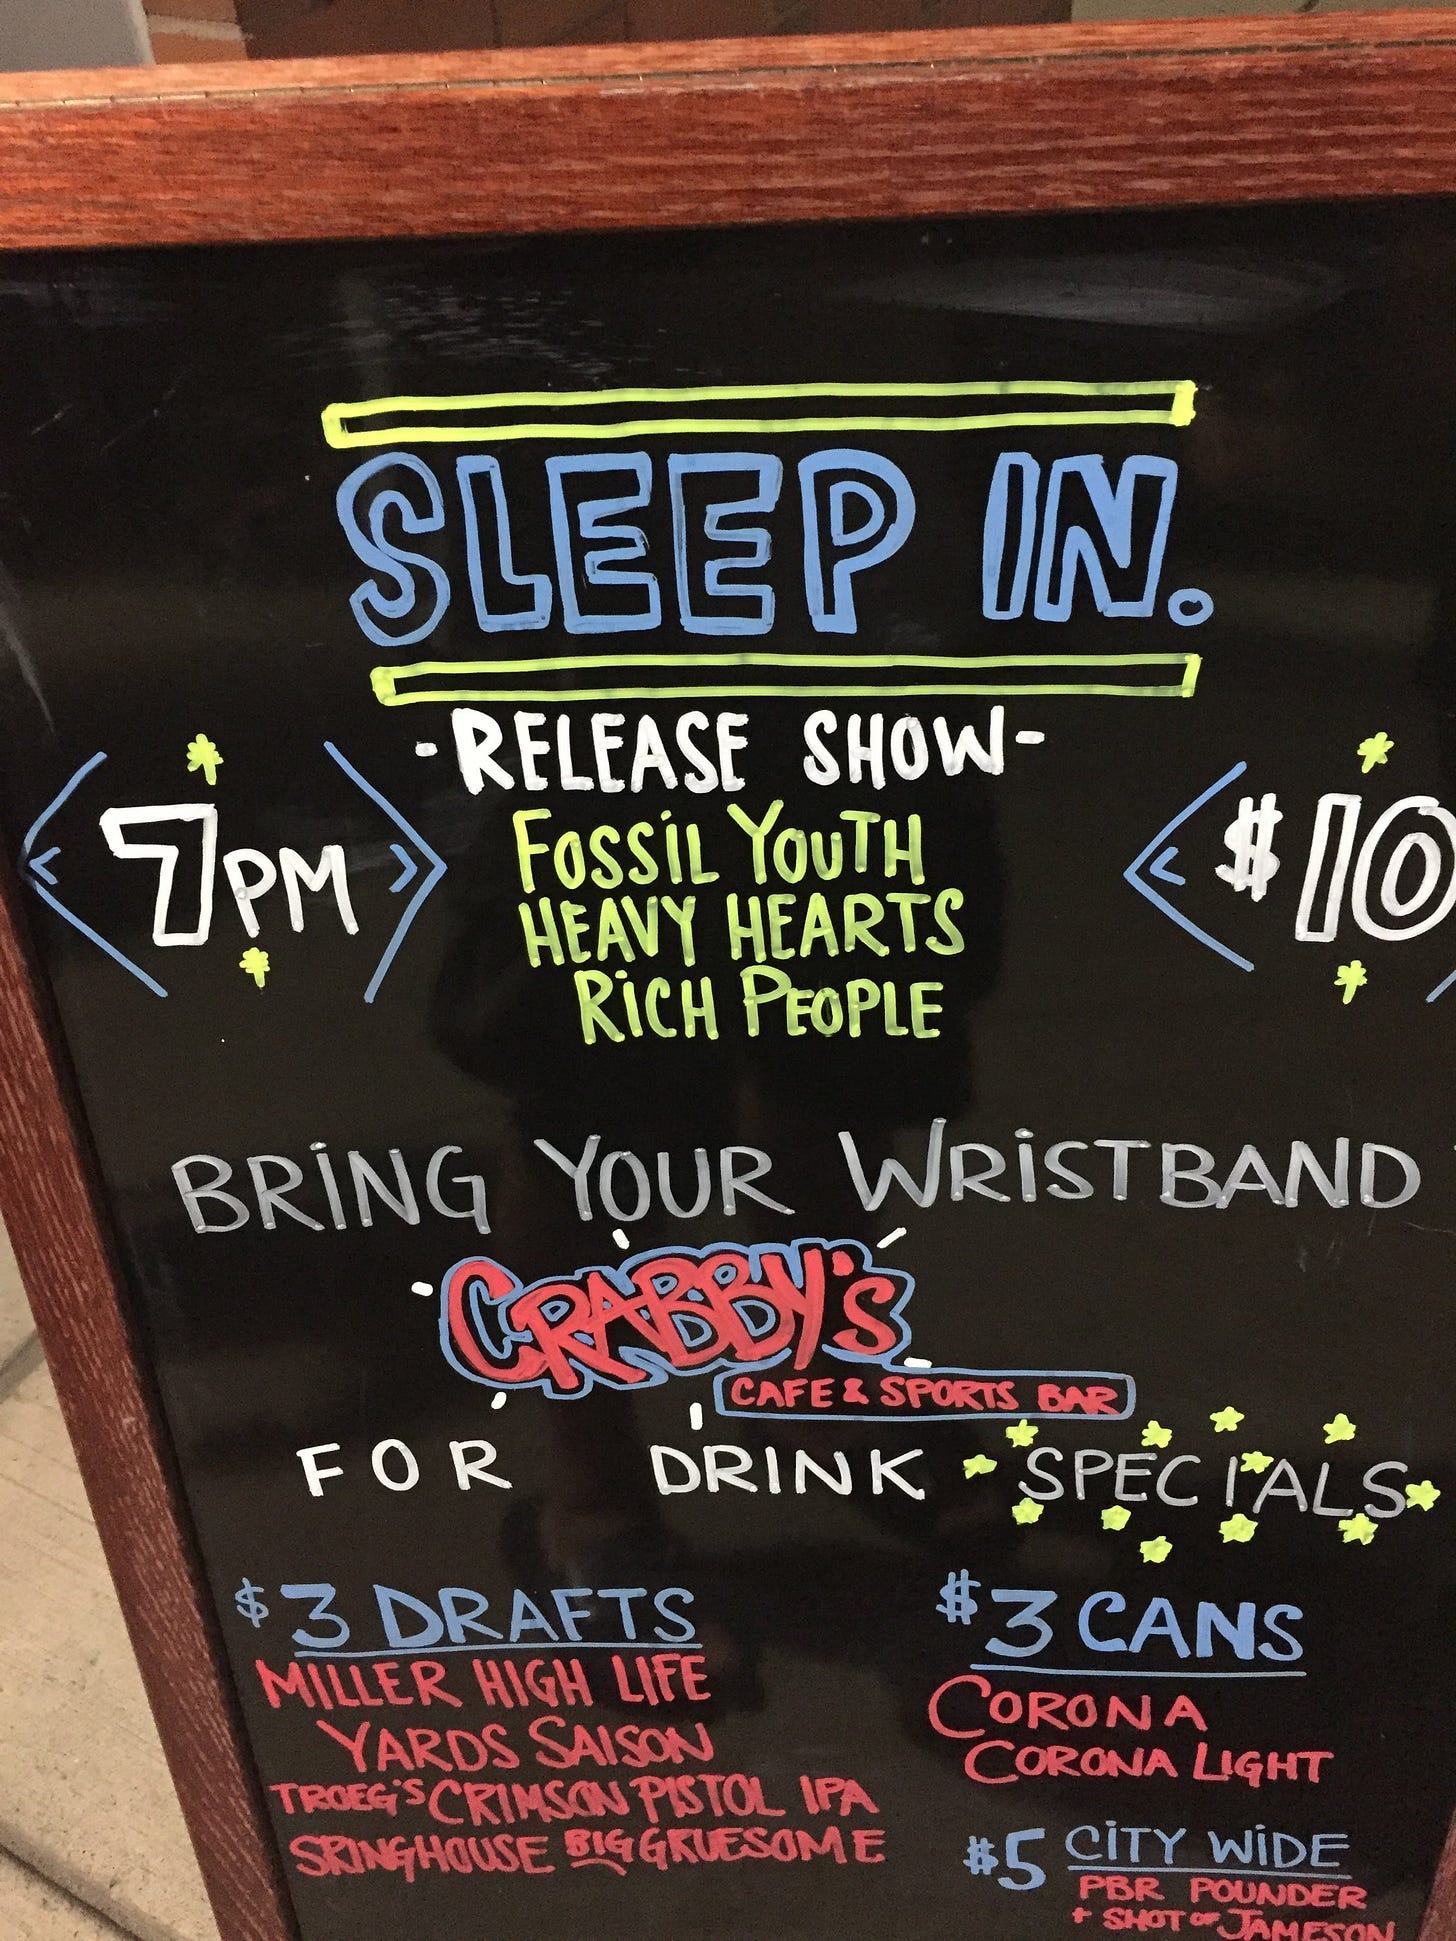 SLEEP IN.
-RELEASE SHOW-
7PM
$10
FOSSIL YOUTH
HEAVY HEARTS
RICH PEOPLE
BRING YOUR WRISTBAND
CRABBY'S
CAFE & SPORTS BAR
FOR DRINK SPECIALS
$3 DRAFTS
MILLER HIGH LIFE
YARDS SAISON
TROEG'S CRIMSON PISTOL IPA
SRINGHOUSE BIG GRUESOME
$3 CANS
CORONA
CORONA LIGHT
$5 CITY WIDE
PBR POUNDER
+ SHOT OF JAMESON